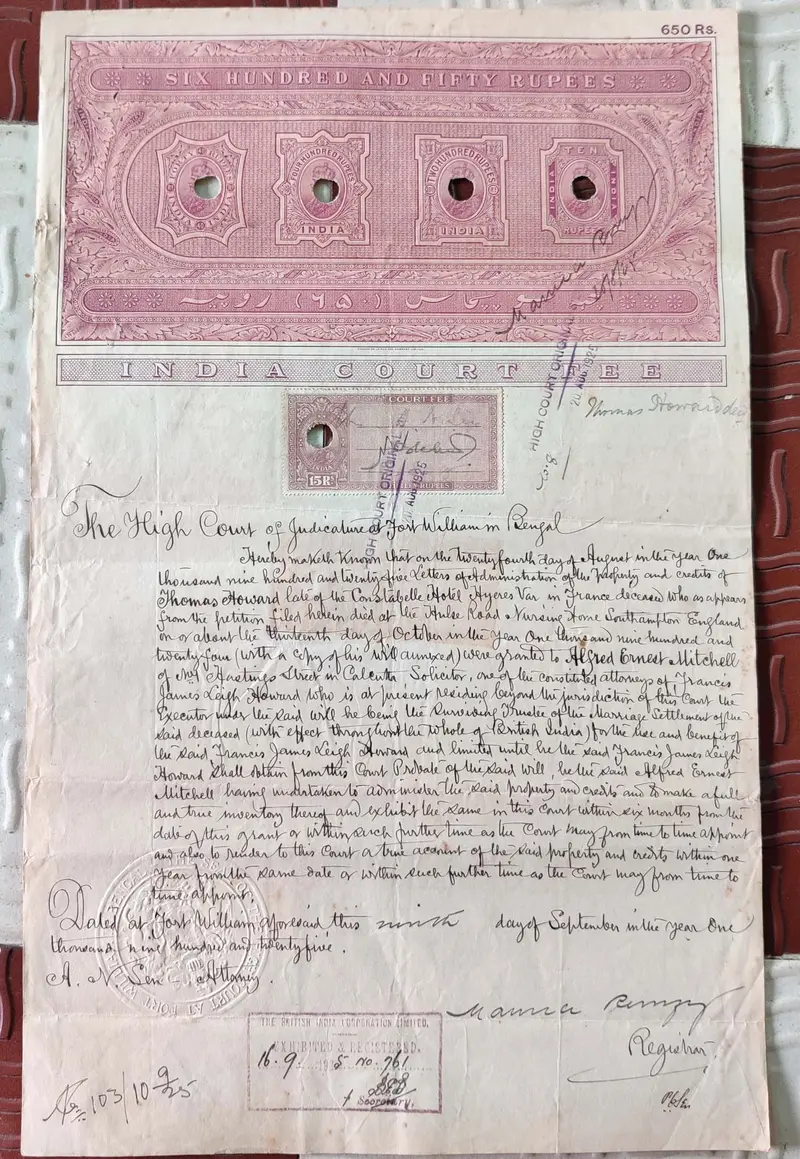 650 Rs.
SIX HUNDRED AND FIFTY RUPEES
FOUR HUNDRED RUPEES
TWO HUNDRED RUPEES
TEN
INDIA
INDIA
INDIA
INDIA
INDIA
RUPEES
(۶۵۰) روپیہ
INDIA COURT FEE
HIGH COURT ORIGINAL
20 AUG 1925
Thomas Howard decd
COURT FEE
INDIA
15Rs
HIGH COURT ORIGINAL
AUG 1925
The High Court of Judicature at Fort William in Bengal
Hereby maketh known that on the twentyfourth day of August in the year One
thousand nine hundred and twentyfive Letters of Administration of the property and credits of
Thomas Howard late of the Constabelle Hotel Hyeres Var in France deceased who as appears
from the petition filed herein died at the Hulse Road Nursing Home Southampton England
on or about the thirteenth day of October in the year One thousand nine hundred and
twentyfour (with a copy of his will annexed) were granted to Alfred Ernest Mitchell
of Hastings Street in Calcutta Solicitor, one of the constituted attorneys of Francis
James Leigh Howard who is at present residing beyond the jurisdiction of this Court the
Executor under the said will he being the surviving Trustee of the Marriage Settlement of the
said deceased (with effect throughout the whole of British India) for the use and benefit of
the said Francis James Leigh Howard and limited until he the said Francis James Leigh
Howard shall obtain from this Court Probate of the said will, he the said Alfred Ernest
Mitchell having undertaken to administer the said property and credits and to make a full
and true inventory thereof and exhibit the same in this court within six months from the
date of this grant or within such further time as the Court may from time to time appoint
and also to render to this Court a true account of the said property and credits within one
year from the same date or within such further time as the Court may from time to
time appoint.
Dated at Fort William aforesaid this ninth day of September in the year One
thousand nine hundred and twentyfive.
A. N. Sen Attorney.
Registrar.
THE BRITISH INDIA CORPORATION LIMITED.
EXHIBITED & REGISTERED.
16.9. 1925 No. 761
Secretary.
No 103/10 9/25